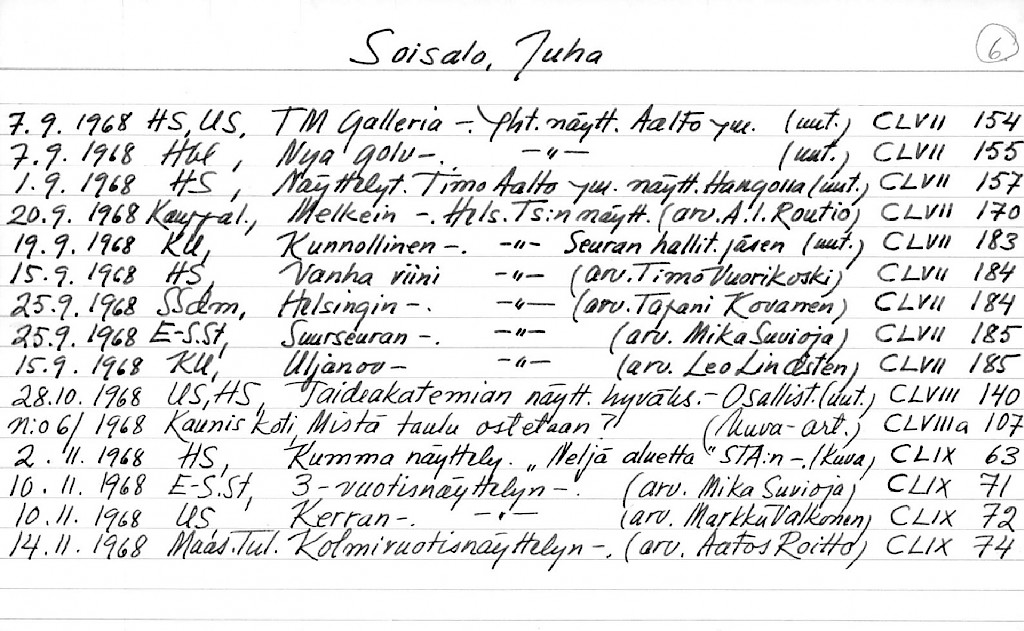 Soisalo, Juha
6.
7.9. 1968 HS, US, TM Galleria -. Yht. näytt. Aalto ym. (uut.) CLVII 154
7.9. 1968 Hbl, Nya golv -. -"- (uut.) CLVII 155
1.9. 1968 HS, Näyttelyt. Timo Aalto ym. näytt. Hangossa (uut.) CLVII 157
20.9. 1968 Kauppal., Melkein -. Hels. Ts:n näytt. (arv. A.I. Routio) CLVII 170
19.9. 1968 KU, Kunnollinen -. -"- Seuran hallit. jäsen (uut.) CLVII 183
15.9. 1968 HS, Vanha riini -"- (arv. Timo Vuorikoski) CLVII 184
25.9. 1968 SSdm, Helsingin -. -"- (arv. Tapani Kovanen) CLVII 184
25.9. 1968 E-S.St, Suurseuran -. -"- (arv. Mika Suvioja) CLVII 185
15.9. 1968 KU, Uljanov - -"- (arv. Leo Lindsten) CLVII 185
28.10. 1968 US, HS, Taideakatemian näytt. hyväks. - Osallist. (uut.) CLVIII 140
n:o 6/ 1968 Kaunis Koti, Mistä taulu ostetaan? (kuva-art.) CLVIIIa 107
2. 11. 1968 HS, Kumma näyttely. "Neljä aluetta" STA:n -. (Kuva) CLIX 63
10. 11. 1968 E-S.St, 3-vuotisnäyttelyn -. (arv. Mika Suvioja) CLIX 71
10.11. 1968 US, Kerran -. -"- (arv. Markku Valkonen) CLIX 72
14.11. 1968 Maas.Tul. Kolmivuotisnäyttelyn -. (arv. Aatos Roitto) CLIX 74